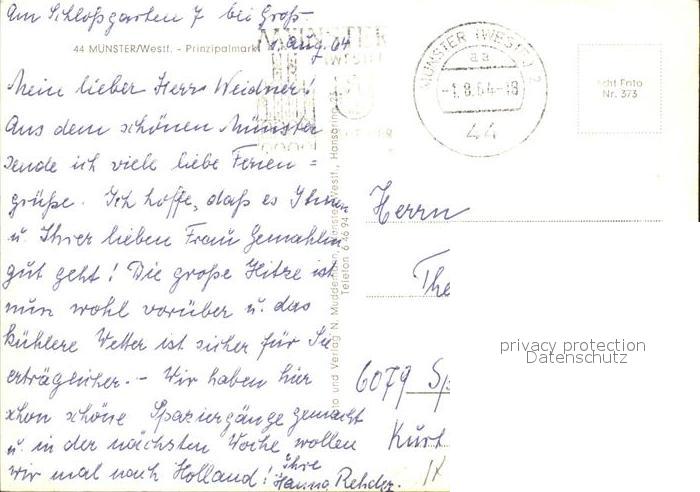 Am Schloßgarten 7 bei Groß-
1. Aug. 64
44 MÜNSTER/Westf. - Prinzipalmarkt
Mein lieber Herr Weidner!
Aus dem schönen Münster
sende ich viele liebe Ferien=
grüße. Ich hoffe, daß es Ihnen
u. Ihrer lieben Frau Gemahlin
gut geht! Die große Hitze ist
nun wohl vorüber u. das
kühlere Wetter ist sicher für Sie
erträglicher. - Wir haben hier
schon schöne Spaziergänge gemacht
u. in der nächsten Woche wollen
wir mal nach Holland! Ihre
Hanna Rehder.
MÜNSTER
MÜNSTER (WESTF) 2
aa
-1.8.64-18
44
Echt Foto
Nr. 373
Foto und Verlag N. Muddemann, Münster/Westf., Hansaring 25
Telefon 6 46 94
Herrn
The
6079 Sp
Kurt
privacy protection
Datenschutz